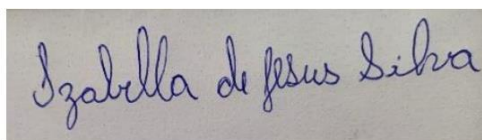 Izabella de Jesus Silva